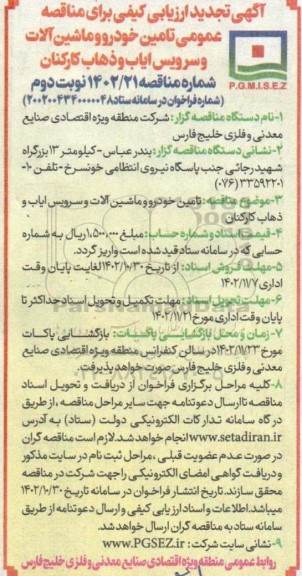 آگهی تجدید ارزیابی کیفی برای مناقصه
عمومی تامین خودرو و ماشین آلات
و سرویس ایاب و ذهاب کارکنان
شماره مناقصه ۱۴۰۲/۲۱ نوبت دوم
(شماره فراخوان در سامانه ستاد ۲۰۰۲۰۰۴۳۴۰۰۰۰۰۴۸)
P.G.M.I.S.E.Z
۱-نام دستگاه مناقصه گزار: شرکت منطقه ویژه اقتصادی صنایع
معدنی و فلزی خلیج فارس
۲-نشانی دستگاه مناقصه گزار: بندر عباس-کیلومتر ۱۳ بزرگراه
شهید رجائی جنب پاسگاه نیروی انتظامی خونسرخ - تلفن ۱۰-
۳۳۵۹۲۲۰۱ (۰۷۶)
۳-موضوع مناقصه: تامین خودرو و ماشین آلات و سرویس ایاب و
ذهاب کارکنان
۴-قیمت اسناد و شماره حساب: مبلغ ۱،۵۰۰،۰۰۰ ریال به شماره
حسابی که در سامانه ستاد قید شده است واریز گردد.
۵-مهلت فروش اسناد: از تاریخ ۱۴۰۲/۱۰/۳۰ لغایت پایان وقت
اداری ۱۴۰۲/۱۱/۷
۶-مهلت تحویل اسناد: مهلت تکمیل و تحویل اسناد حداکثر تا
پایان وقت اداری مورخ ۱۴۰۲/۱۱/۲۱
۷-زمان و محل بازگشایی پاکات: بازگشایی پاکات
مورخ ۱۴۰۲/۱۱/۲۳ در سالن کنفرانس منطقه ویژه اقتصادی صنایع
معدنی و فلزی خلیج فارس صورت خواهد پذیرفت.
۸-کلیه مراحل برگزاری فراخوان از دریافت و تحویل اسناد
مناقصه تا ارسال دعوتنامه جهت سایر مراحل مناقصه، از طریق
درگاه سامانه تدارکات الکترونیکی دولت (ستاد) به آدرس
www.setadiran.ir انجام خواهد شد. لازم است مناقصه گران
در صورت عدم عضویت قبلی، مراحل ثبت نام در سایت مذکور
و دریافت گواهی امضای الکترونیکی را جهت شرکت در مناقصه
محقق سازند. تاریخ انتشار فراخوان در سامانه تاریخ ۱۴۰۲/۱۰/۳۰
میباشد. اطلاعات و اسناد ارزیابی کیفی و ارسال دعوتنامه از طریق
سامانه ستاد به مناقصه گران ارسال خواهد شد.
۹-نشانی سایت شرکت: www.PGSEZ.ir
روابط عمومی منطقه ویژه اقتصادی صنایع معدنی و فلزی خلیج فارس